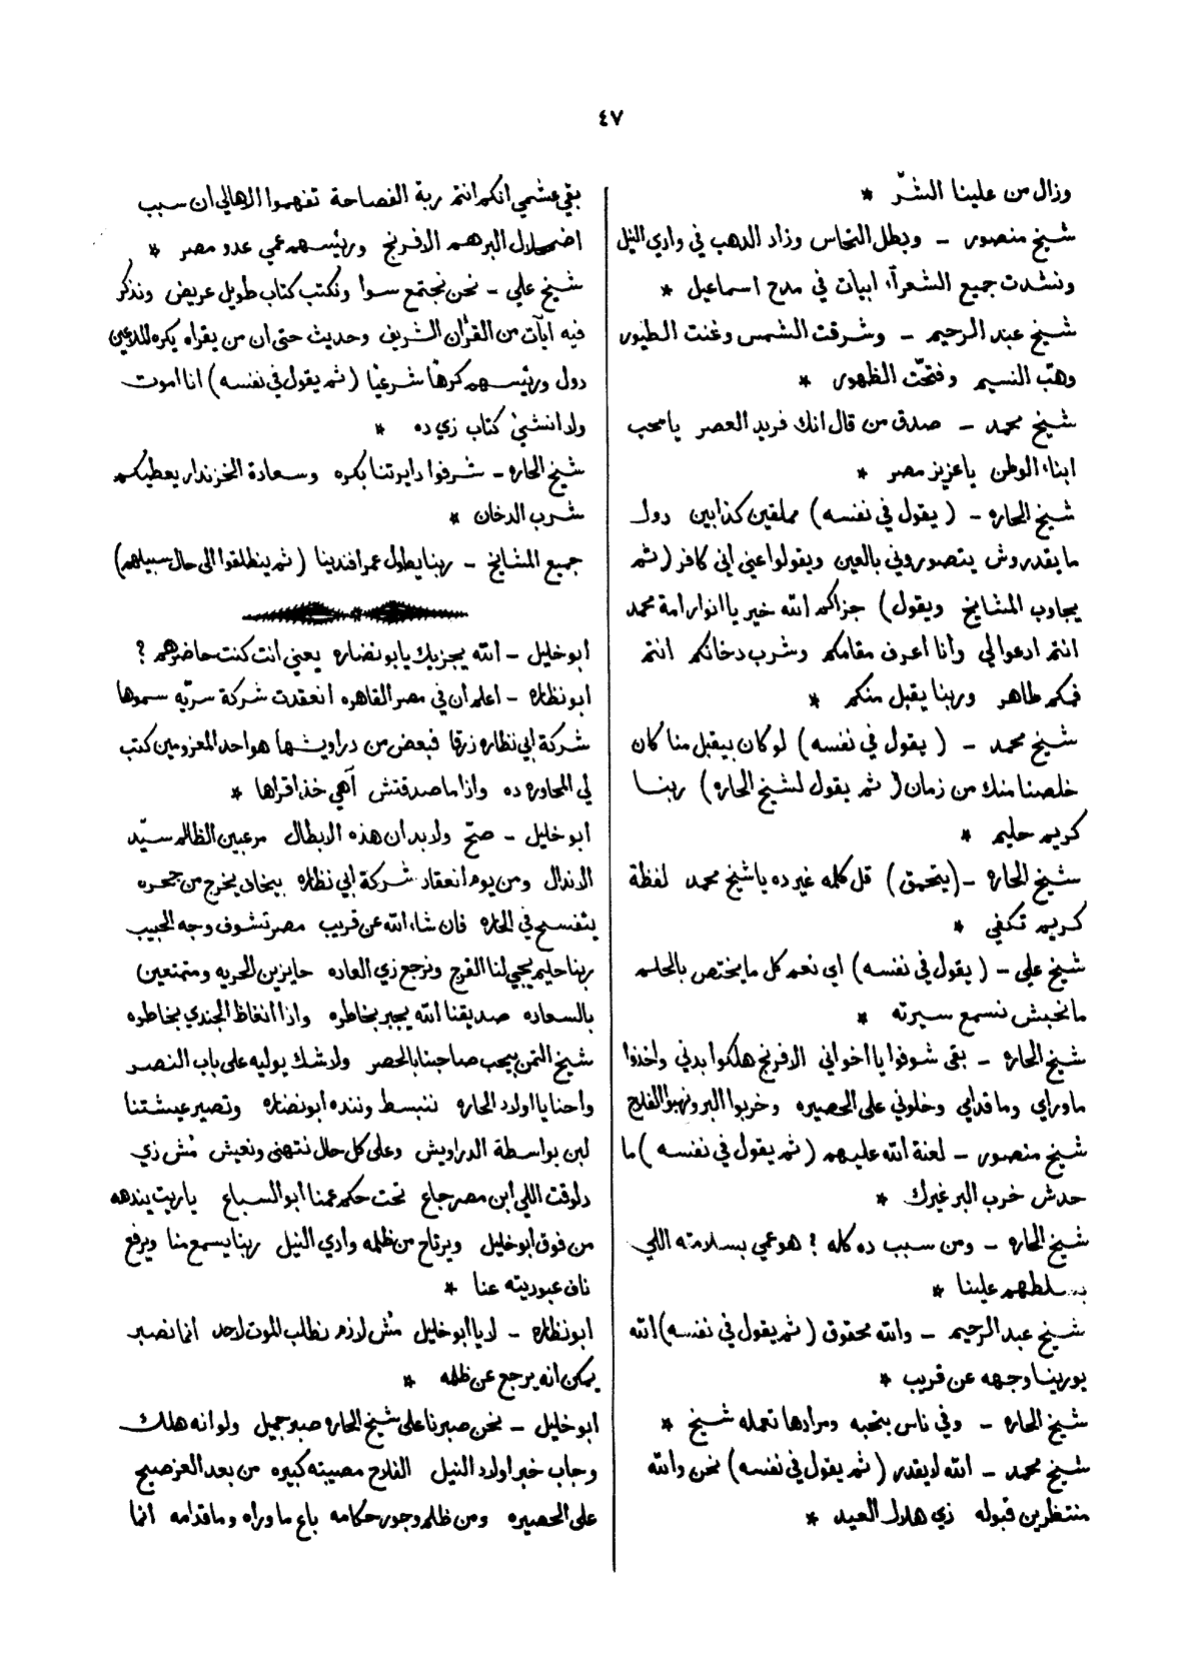 ٤٧
وزال من علينا الشرّ *
شيخ منصور - وبطل النحاس وزاد الدهب في وادي النيل
ونشدت جميع الشعرآء ابيات في مدح اسماعيل *
شيخ عبد الرحيم - وشرقت الشمس وغنت الطيور
وهبّ النسيم وفتحّت الظهور *
شيخ محمد - صدق من قال انك فريد العصر يا محب
ابناء الوطن يا عزيز مصر *
شيخ الحاره - ( يقول في نفسه ) مملقين كذابين دول
ما يقدروش يتصوروني بالعين ويقولوا عني اني كافر ( ثم
يجاوب المشايخ ويقول ) جزاكم الله خير يا انوار امة محمد
انتم ادعوا لي وأنا أعرف مقامكم وشرب دخانكم انتم
فمكم طاهر وربنا يقبل منكم *
شيخ محمد - ( يقول في نفسه ) لو كان بيقبل منا كان
خلصنا منك من زمان ( ثم يقول لشيخ الحاره ) ربنا
كريم حليم *
شيخ الحاره - ( يتحمق ) قل كلمه غير ده يا شيخ محمد لفظة
كريم تكفي *
شيخ علي - ( يقول في نفسه ) اي نعم كل ما يختص بالحلم
ما نحبش نسمع سيرته *
شيخ الحاره - بقى شوفوا يا اخواني الافرنج هلكوا بدني واخذوا
ما وراي وما قدامي وخلوني على الحصيره وخربوا البر ونهبوا الفلاح
شيخ منصور - لعنة الله عليهم ( ثم يقول في نفسه ) ما
حدش خرب البر غيرك *
شيخ الحاره - ومن سبب ده كله ؟ هو عمي بسلامته اللي
بسلطهم علينا *
شيخ عبد الرحيم - والله محقوق ( ثم يقول في نفسه ) الله
يورينا وجهه عن قريب *
شيخ الحاره - وفي ناس بتحبه ومرادها تعمله شيخ *
شيخ محمد - الله لا يقدر ( ثم يقول في نفسه ) نحن والله
منتظرين قبوله زي هلال العيد *
بقي عشمي انكم انتم ربة الفصاحة تفهموا الاهالي ان سبب
اضمحلال البر هم الافرنج ورئيسهم عمي عدو مصر *
شيخ علي - نحن نجتمع سوا ونكتب كتاب طويل عريض ونذكر
فيه ايآت من القرآن الشريف وحديث حتى ان من يقراه يكره الملاعين
دول ورئيسهم كرهًا شرعيًا ( ثم يقول في نفسه ) انا اموت
ولا انشئ كتاب زي ده *
شيخ الحاره - شرفوا دايرتنا بكره وسعادة الخزندار يعطيكم
شرب الدخان *
جميع المشايخ - ربنا يطول عمر افندينا ( ثم ينطلقوا الى حال سبيلهم )
ابو خليل - الله يجزيك يا بو نضاره يعني أنت كنت حاضرهم ؟
ابو نظاره - اعلم أن في مصر القاهره انعقدت شركة سرّيه سموها
شركة ابي نظاره زرقا فبعض من دراويشها هو احد المعزومين كتب
لي المحاوره ده واذا ما صدقتش آهي خذ اقراها *
ابو خليل - صحّ ولا بد ان هذه الابطال مرعبين الظالم سيّد
الاندال ومن يوم انعقاد شركة ابي نظاره بيخاف يخرج من جحره
يتفسح في الحاره فان شاء الله عن قريب مصر تشوف وجه الحبيب
ربنا حليم يجي لنا الفرج ونرجع زي العاده حايزين الحريه ومتمتعين
بالسعاده صديقنا الله يجبر بخاطره واذا انغاظ الجندي بخاطره
شيخ التمن بيحب صاحبنا بالحصر ولا شك يوليه على باب النصر
واحنا يا اولاد الحاره ننبسط ونده أبو نضاره وتصير عيشتنا
لبن بواسطة الدراويش وعلى كل حال نتهنى ونعيش مُش زي
دلوقت اللي ابن مصر جاع تحت حكم عمنا ابو السباع يا ريت يندهه
من فوق ابو خليل ويرتاح من ظلمه وادي النيل ربنا يسمع منا ويرفع
ناف عبوديته عنا *
ابو نظاره - لا يا أبو خليل مُش لازم نطالب الموت لاحد انما نصبر
يمكن انه يرجع عن ظلمه *
ابو خليل - نحن صبرنا على شيخ الحاره صبر جميل ولو انه هلك
وجاب خبر اولاد النيل الفلاح مصيبته كبيره من بعد العز صبح
على الحصيره ومن ظلم وجور حكامه باع ما وراه وما قدامه انما